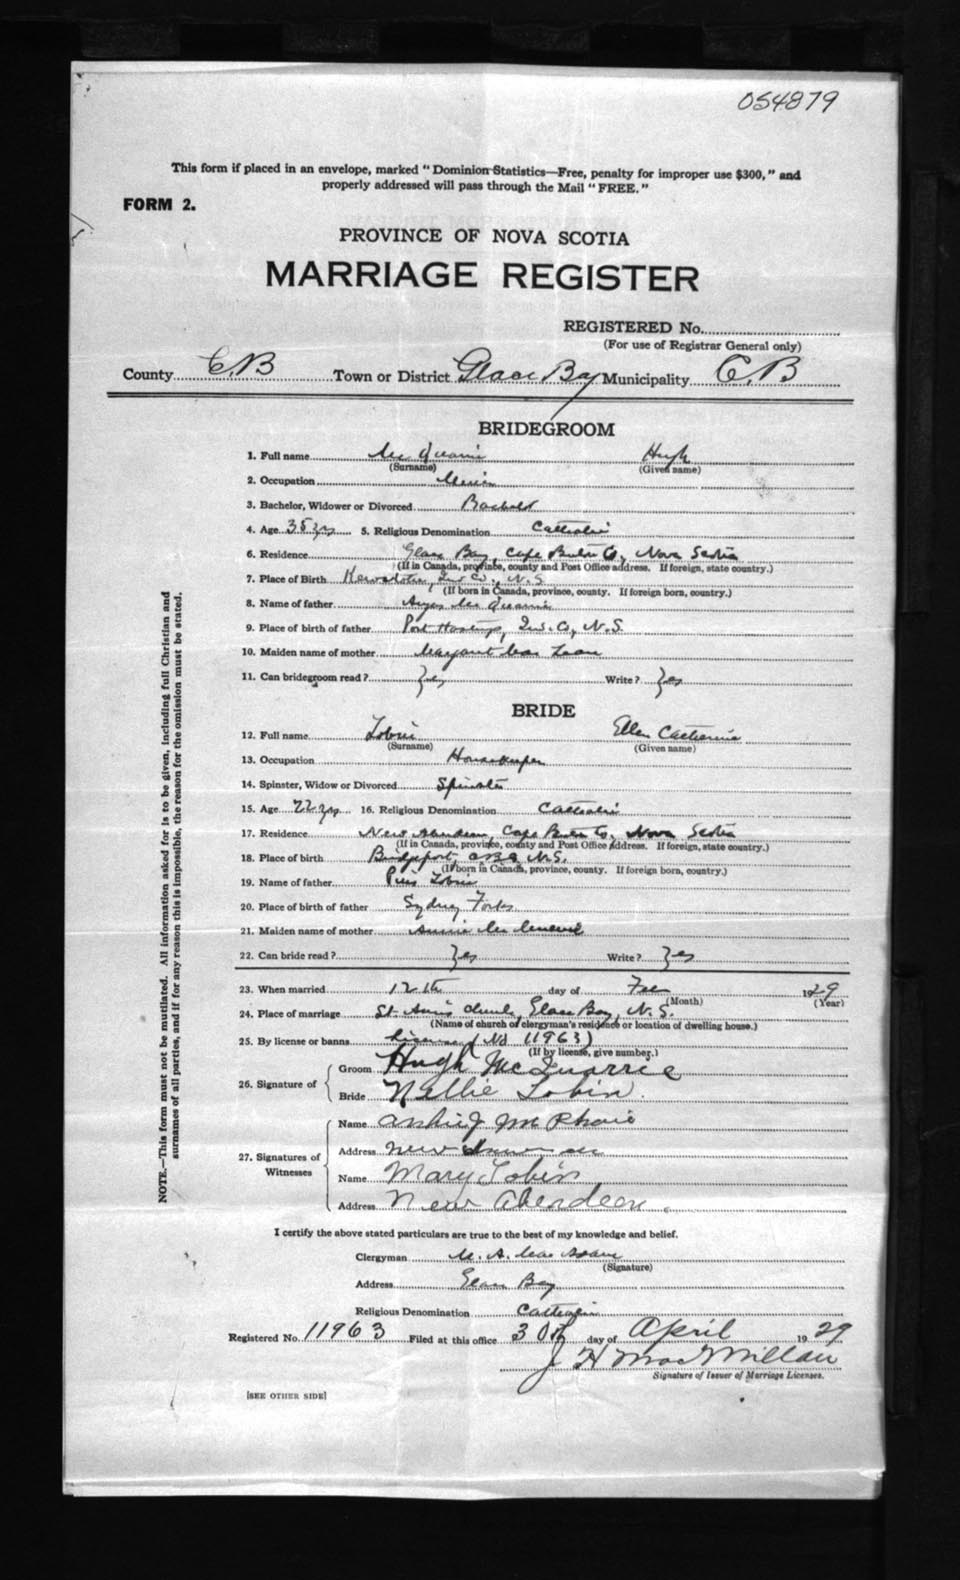 054879
This form if placed in an envelope, marked "Dominion Statistics—Free, penalty for improper use $300," and
properly addressed will pass through the Mail "FREE."
FORM 2.
PROVINCE OF NOVA SCOTIA
MARRIAGE REGISTER
REGISTERED No.
(For use of Registrar General only)
County C.B Town or District Glace Bay Municipality C.B
BRIDEGROOM
1. Full name Mc Quarrie Hugh
(Surname) (Given name)
2. Occupation Miner
3. Bachelor, Widower or Divorced Bachelor
4. Age 35 yrs 5. Religious Denomination Catholic
6. Residence Glace Bay, Cape Breton Co, Nova Scotia
(If in Canada, province, county and Post Office address. If foreign, state country.)
7. Place of Birth Inv Co., N.S
(If born in Canada, province, county. If foreign born, country.)
8. Name of father Angus Mc Quarrie
9. Place of birth of father Port Hastings, Inv. Co, N.S
10. Maiden name of mother Margaret Mac Lean
11. Can bridegroom read? Yes Write? Yes
BRIDE
12. Full name Tobin Ellen Catherine
(Surname) (Given name)
13. Occupation Housekeeper
14. Spinster, Widow or Divorced Spinster
15. Age 22 yrs 16. Religious Denomination Catholic
17. Residence New Aberdeen, Cape Breton Co, Nova Scotia
(If in Canada, province, county and Post Office Address. If foreign, state country.)
18. Place of birth Bridgeport, N.S.
(If born in Canada, province, county. If foreign born, country.)
19. Name of father Pius Tobin
20. Place of birth of father Sydney Forks
21. Maiden name of mother Annie Mc
22. Can bride read? Yes Write? Yes
23. When married 12th day of Feb 1929
(Month) (Year)
24. Place of marriage St. Ann's Church, Glace Bay, N.S.
(Name of church or clergyman's residence or location of dwelling house.)
25. By license or banns License (No 11963)
(If by license, give number.)
26. Signature of
Groom Hugh McQuarrie
Bride Nellie Tobin.
27. Signatures of
Witnesses
Name J Mc Phail
Address New
Name Mary Tobin
Address New Aberdeen.
I certify the above stated particulars are true to the best of my knowledge and belief.
Clergyman M. A. Mac Adam
(Signature)
Address Glace Bay
Religious Denomination Catholic
Registered No. 11963 Filed at this office 30th day of April 1929
J H MacMillan
Signature of Issuer of Marriage Licenses.
[SEE OTHER SIDE]
NOTE.—This form must not be mutilated. All information asked for is to be given, including full Christian and
surnames of all parties, and if for any reason this is impossible, the reason for the omission must be stated.